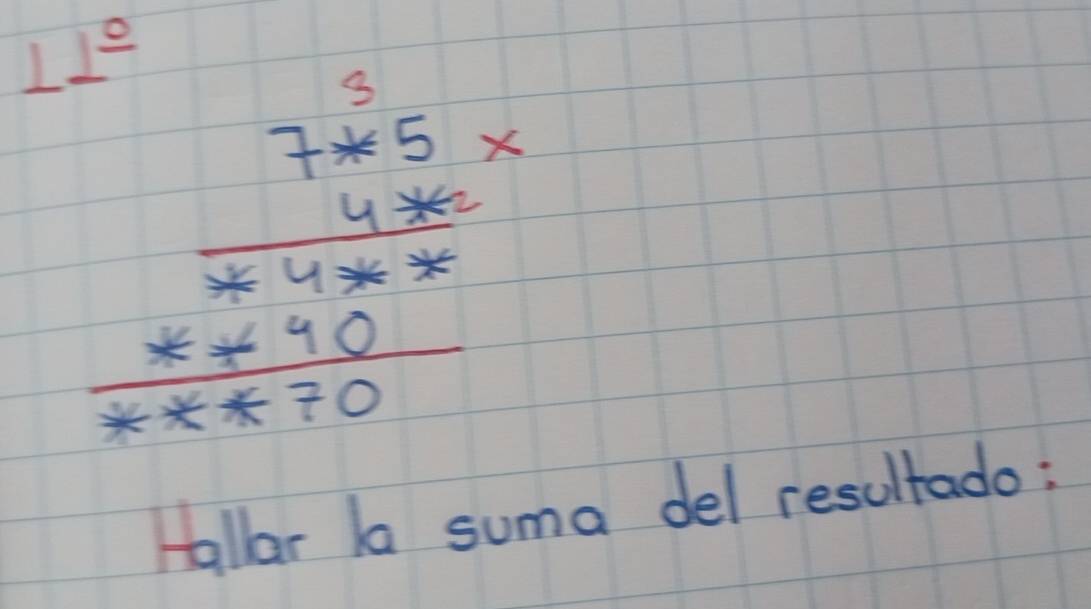 11º
3
7*5 x
4*2
*4**
**40
***70
Hallar la suma del resultado: